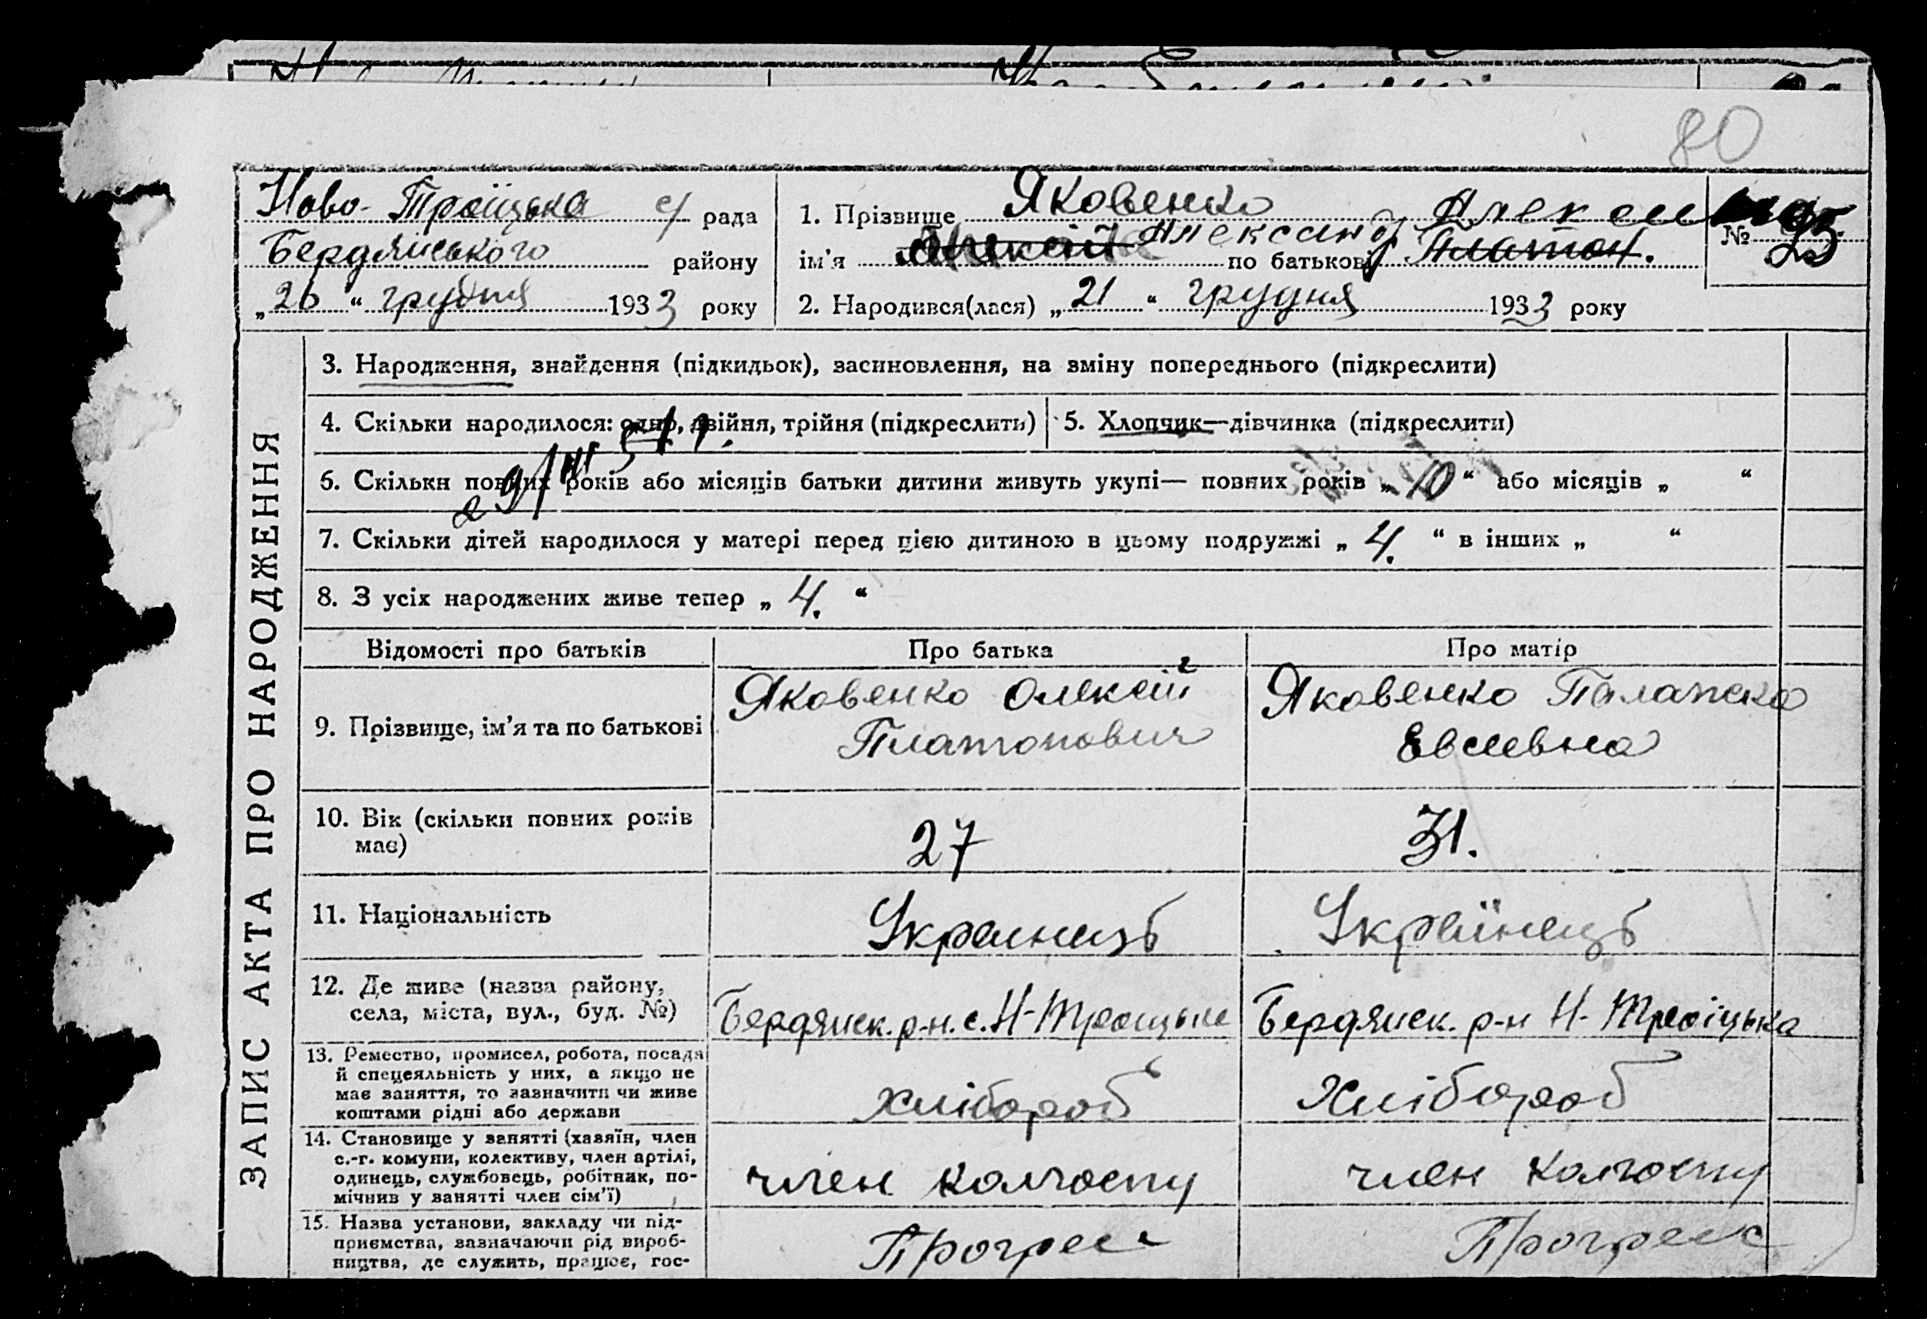 80
Ново-Троїцька с/ рада
Бердянського району
„26“ грудня 1933 року
1. Прізвище Яковенко
ім'я Олексій Александр по батькові Платон. Алексеи
№ 95
2. Народився(лася) „21“ грудня 1933 року
ЗАПИС АКТА ПРО НАРОДЖЕННЯ
3. Народження, знайдення (підкидьок), засиновлення, на зміну попереднього (підкреслити)
4. Скільки народилося: одно, двійня, трійня (підкреслити)
5. Хлопчик—дівчинка (підкреслити)
6. Скільки повних років або місяців батьки дитини живуть укупі— повних років „10“ або місяців „ “
7. Скільки дітей народилося у матері перед цією дитиною в цьому подружжі „4.“ в інших „ “
8. З усіх народжених живе тепер „4.“
Відомості про батьків Про батька Про матір
9. Прізвище, ім'я та по батькові
Яковенко Олексій
Платонович
Яковенко Палажка
Евсеевна
10. Вік (скільки повних років
має)
27
31.
11. Національність
Украинець
Українець
12. Де живе (назва району,
села, міста, вул., буд. №)
Бердянск. р-н. с. Н-Троицьке
Бердянск. р-н Н-Троїцька
13. Ремество, промисел, робота, посада
й спецеяльність у них, а якщо не
має заняття, то зазначити чи живе
коштами рідні або держави
хлібороб
Хлібороб
14. Становище у занятті (хазяїн, член
с.-г. комуни, колективу, член артілі,
одинець, службовець, робітник, по-
мічнив у занятті член сім'ї)
член колгоспу
член колгоспу
15. Назва установи, закладу чи під-
приємства, зазначаючи рід вироб-
ництва, де служить, працює, гос-
Прогрес
Прогресс